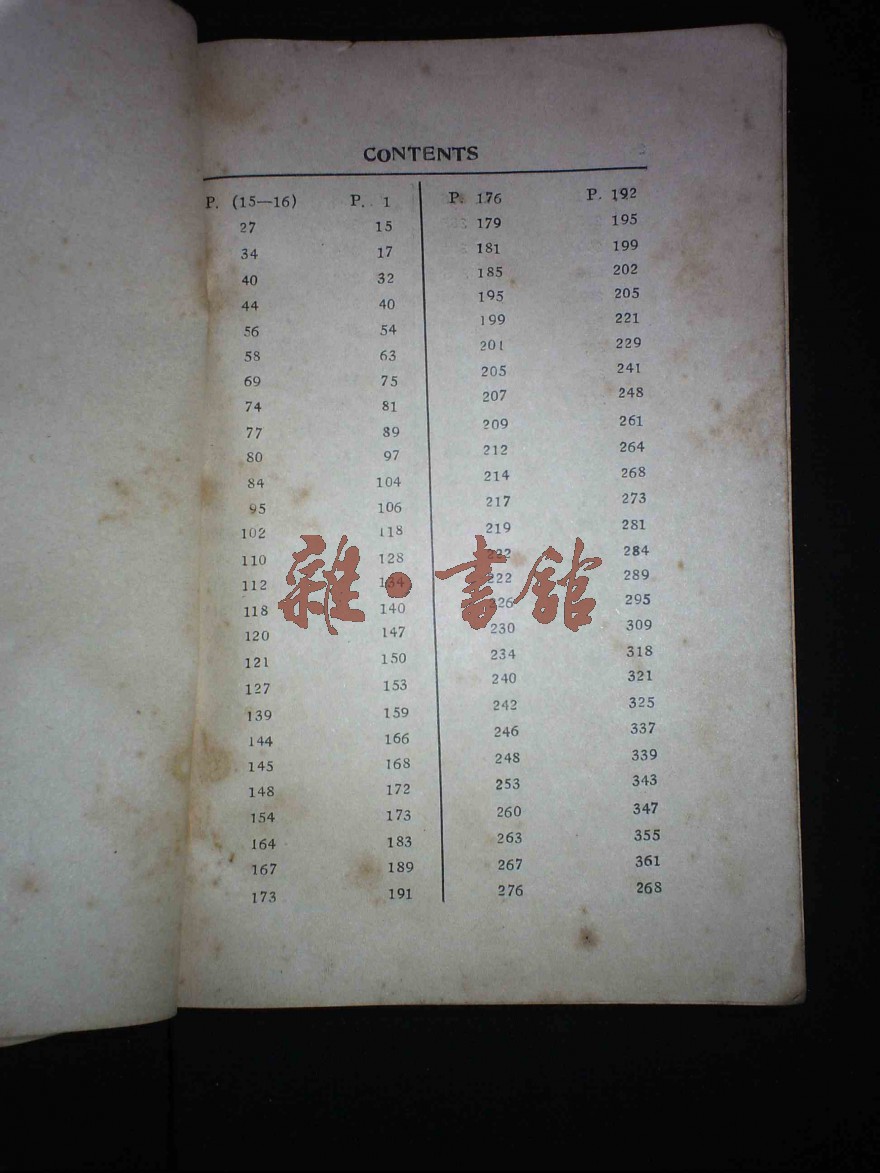 CONTENTS
P. (15—16) P. 1 P. 176 P. 192
27 15 179 195
34 17 181 199
40 32 185 202
44 40 195 205
56 54 199 221
58 63 201 229
69 75 205 241
74 81 207 248
77 89 209 261
80 97 212 264
84 104 214 268
95 106 217 273
102 118 219 281
110 128 222 284
112 134 222 289
118 140 226 295
120 147 230 309
121 150 234 318
127 153 240 321
139 159 242 325
144 166 246 337
145 168 248 339
148 172 253 343
154 173 260 347
164 183 263 355
167 189 267 361
173 191 276 268
雜·書館